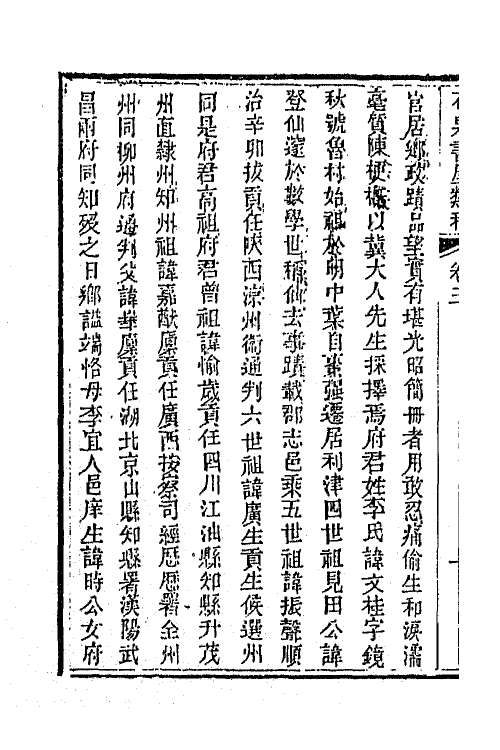 石泉書屋類稿 卷三
官居鄉政蹟品望實有堪光昭簡冊者用敢忍痛偷生和淚濡
毫質陳梗概以冀大人先生採擇焉府君姓李氏諱文桂字鏡
秋號魯村始祖於明中葉自棗强遷居利津四世祖見田公諱
登仙邃於數學世稱仙去事蹟載郡志邑乘五世祖諱振聲順
治辛卯拔貢任陜西涼州衛通判六世祖諱廣生貢生候選州
同是府君高祖府君曾祖諱愉歲貢任四川江油縣知縣升茂
州直隸州知州祖諱嘉猷廩貢任廣西按察司經歷歷署全州
州同柳州府通判父諱華廩貢任湖北京山縣知縣署漢陽武
昌兩府同知歿之日鄉諡端恪母李宜人邑庠生諱時公女府